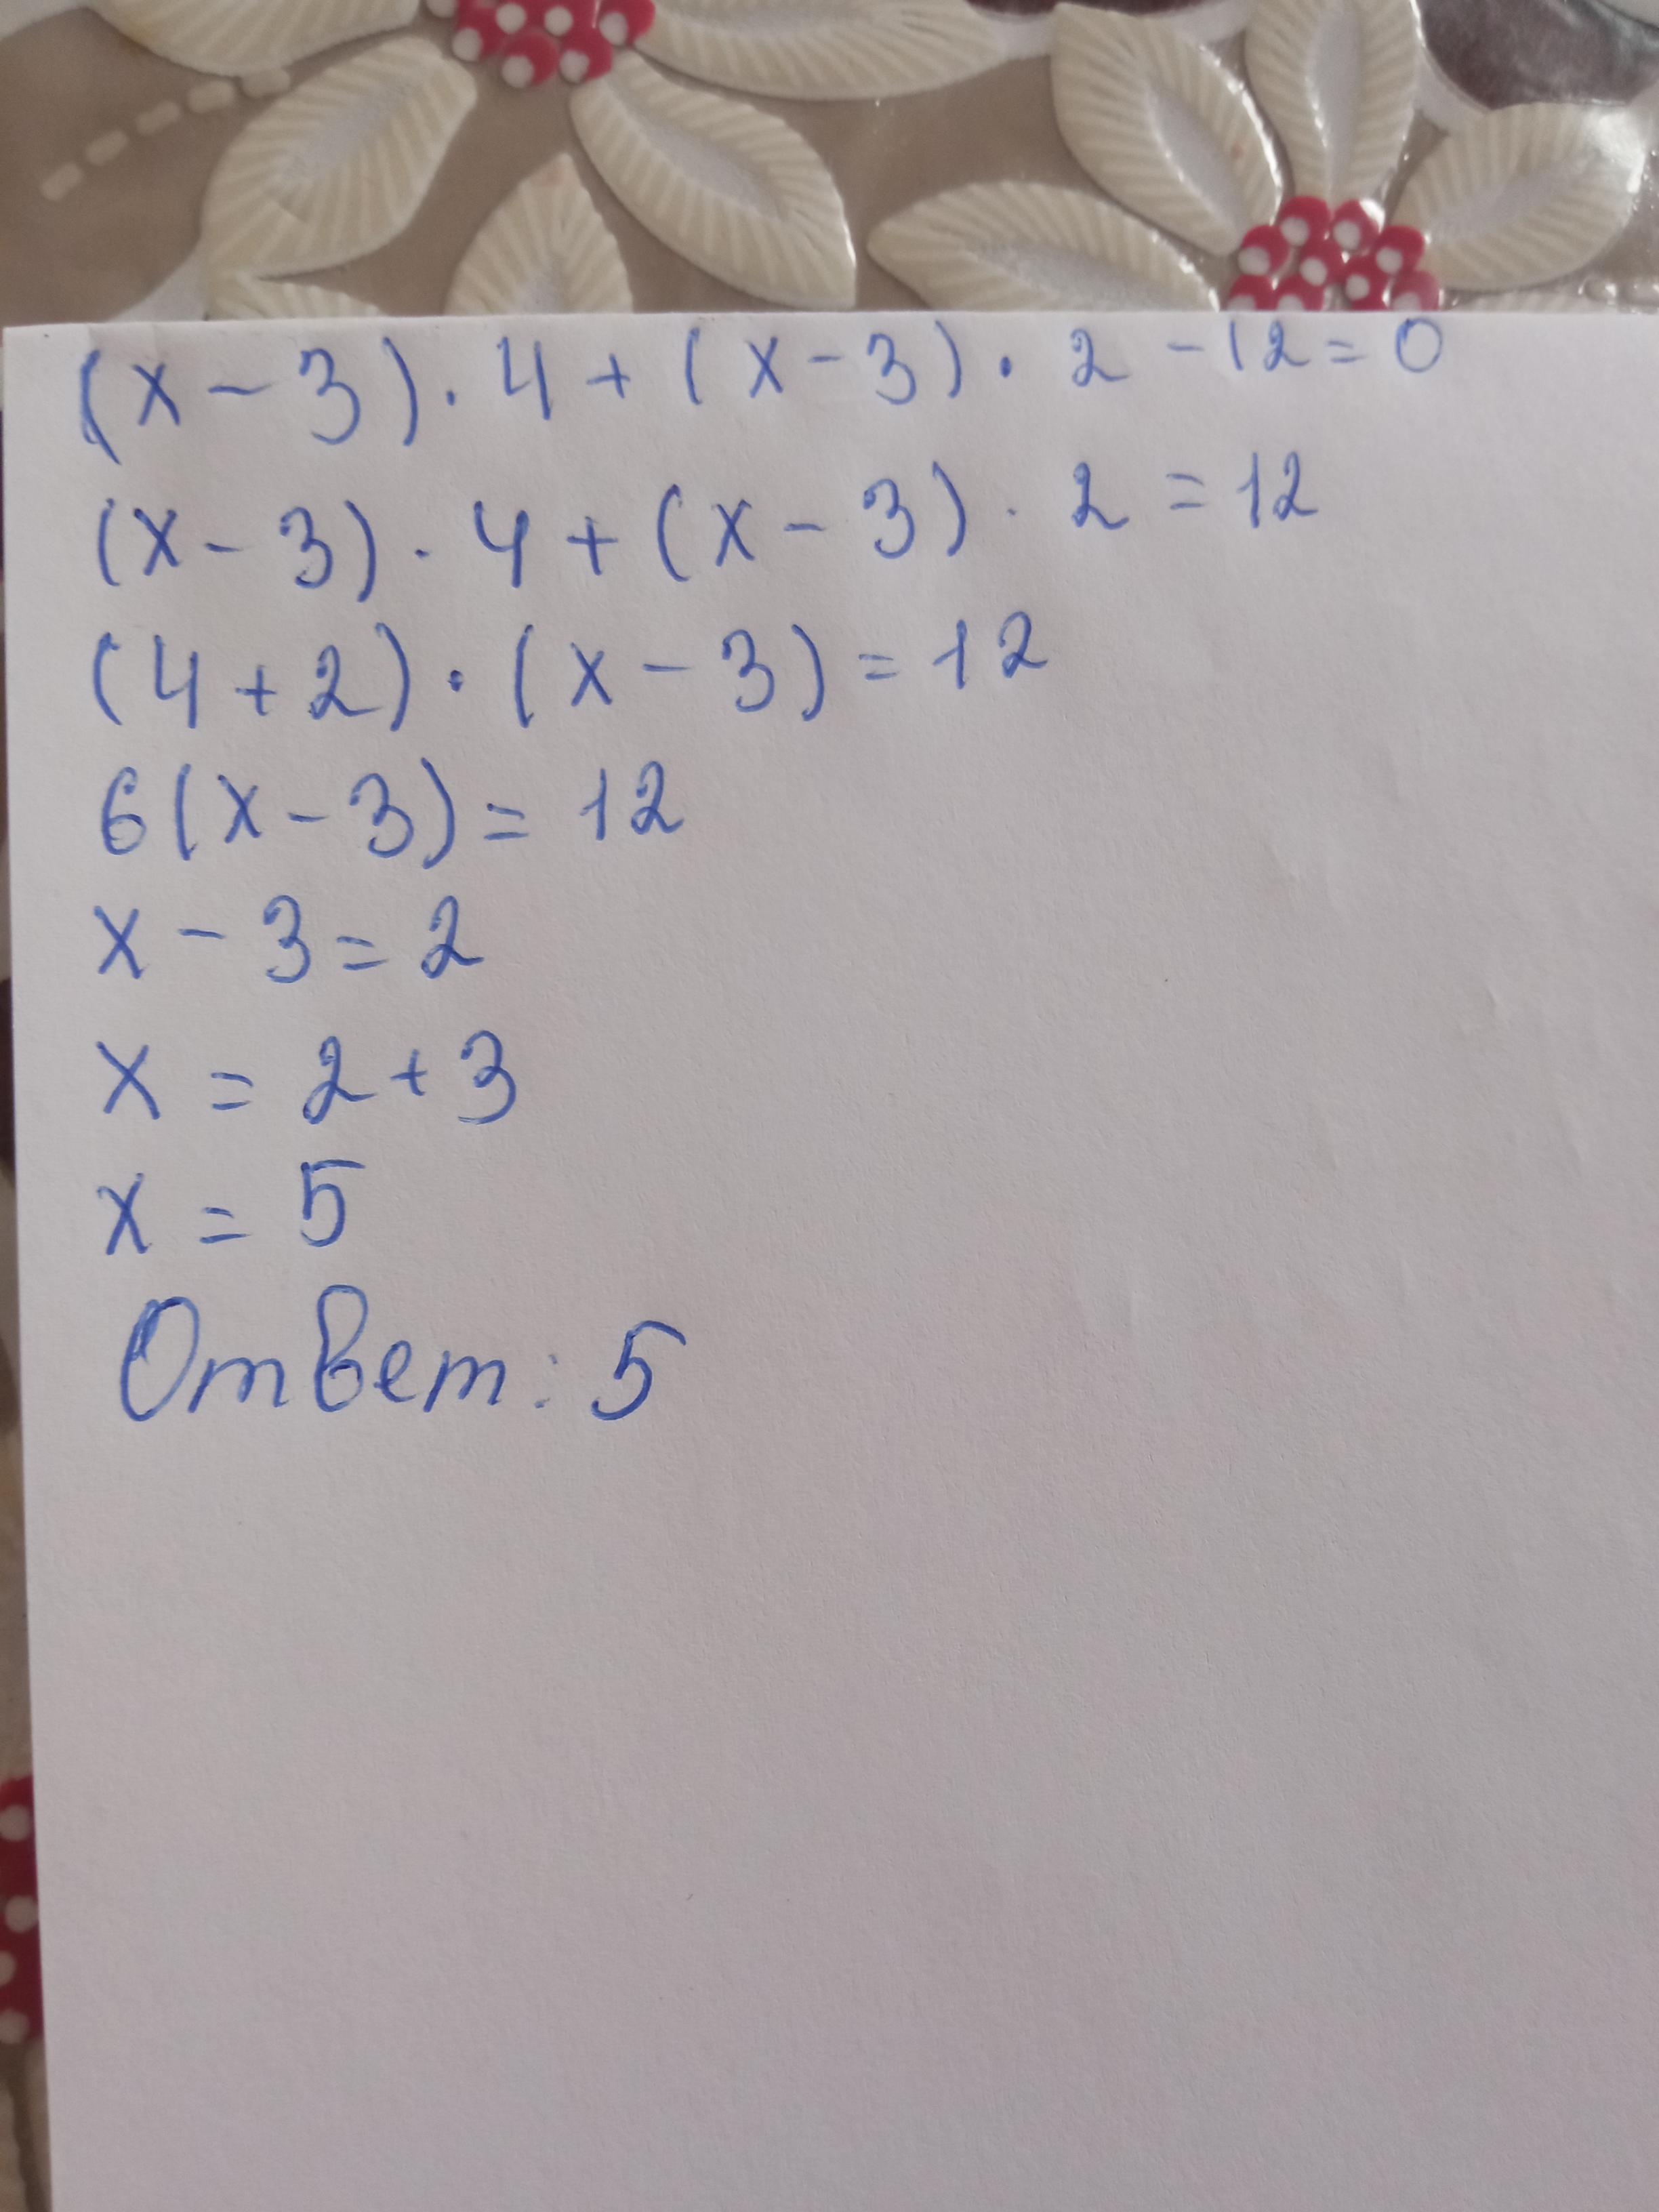 (x-3)·4+(x-3)·2-12=0
(x-3)·4+(x-3)·2=12
(4+2)·(x-3)=12
6(x-3)=12
x-3=2
x=2+3
x=5
Ответ: 5